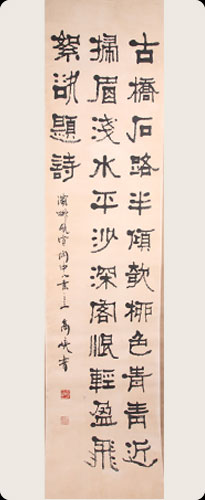 古橋石路半傾欹柳色青青近
掃眉淺水平沙深客恨輕盈飛
絮欲題詩
書